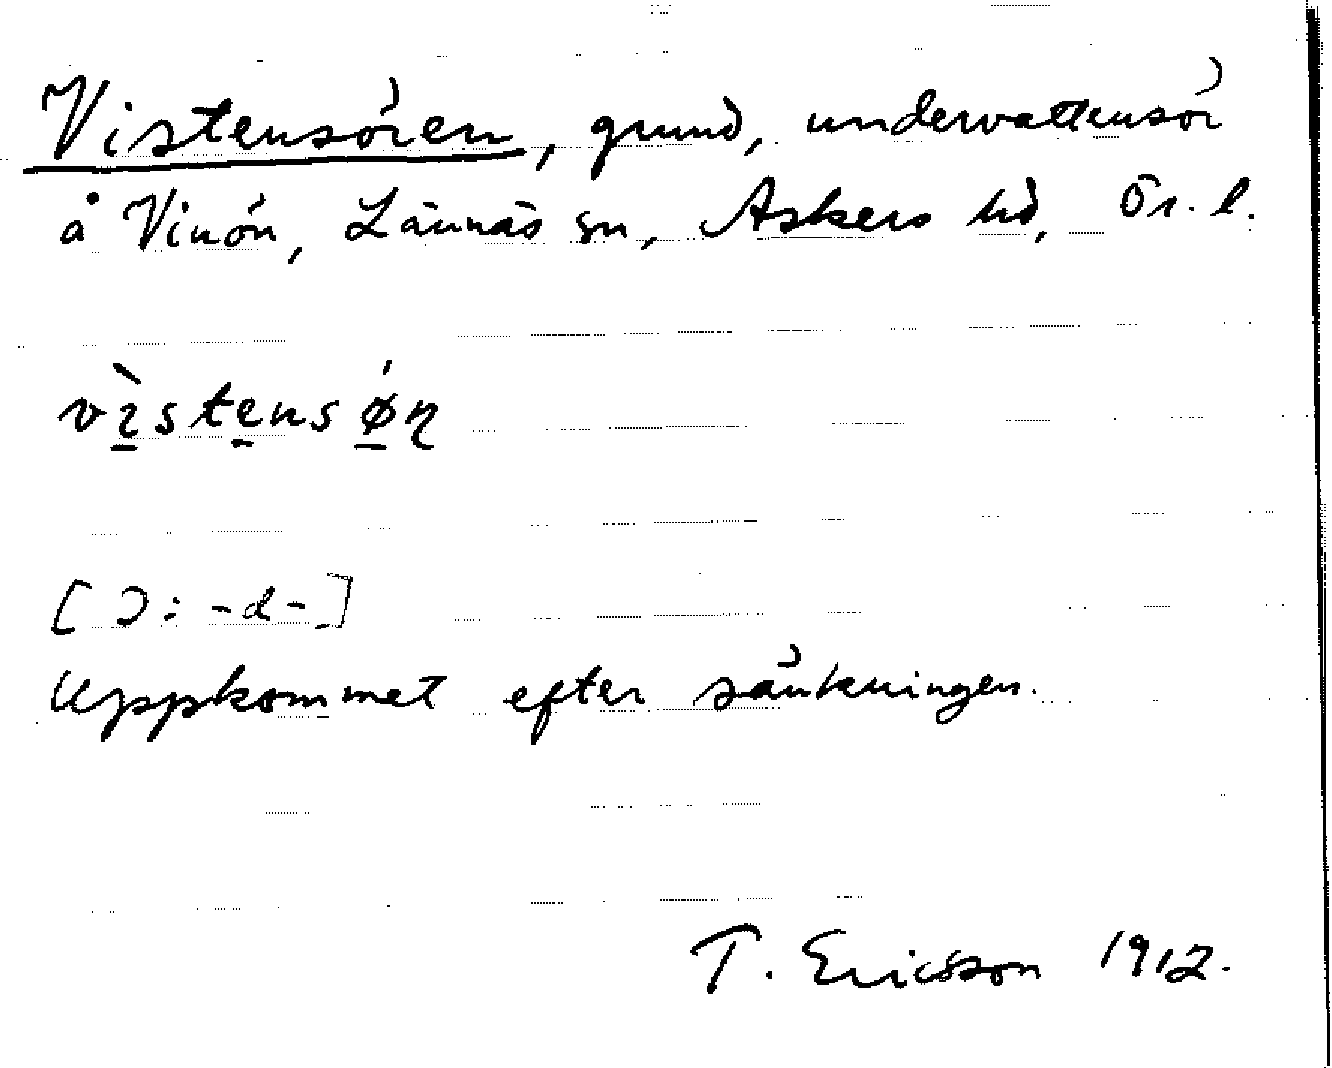 Vistensören, grund, undervattensör
å Vinön, Lännäs sn, Askers hd, Ör. l.
vı̀stensǿɳ
[Ɔ: -d-]
Uppkommet efter sänkningen.
T. Ericsson 1912.